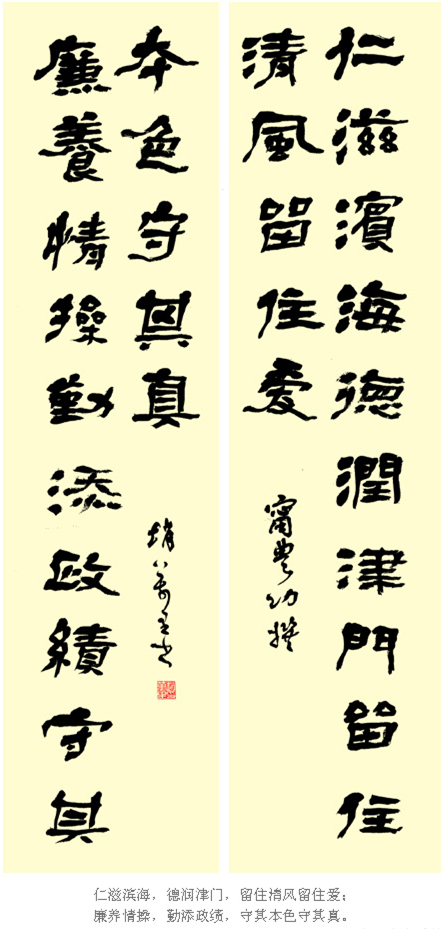 仁滋濱海德潤津門留住
清風留住爱
甯豊功撰
廉養情操勤添政績守其
本色守其真
仁滋滨海，德润津门，留住清风留住爱；
廉养情操，勤添政绩，守其本色守其真。